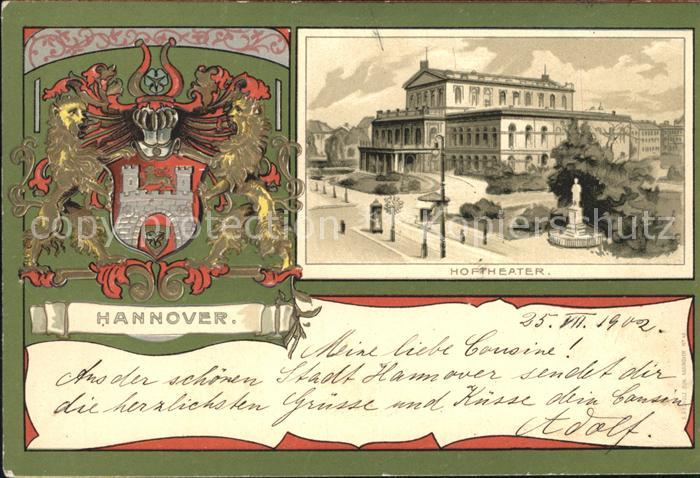 HOFTHEATER.
HANNOVER.
25. VII. 1902.
Meine liebe Cousine!
Aus der schönen Stadt Hannover sendet dir
die herzlichsten Grüsse und Küsse dein Cousin
Adolf.
copyright protection Kopierschutz